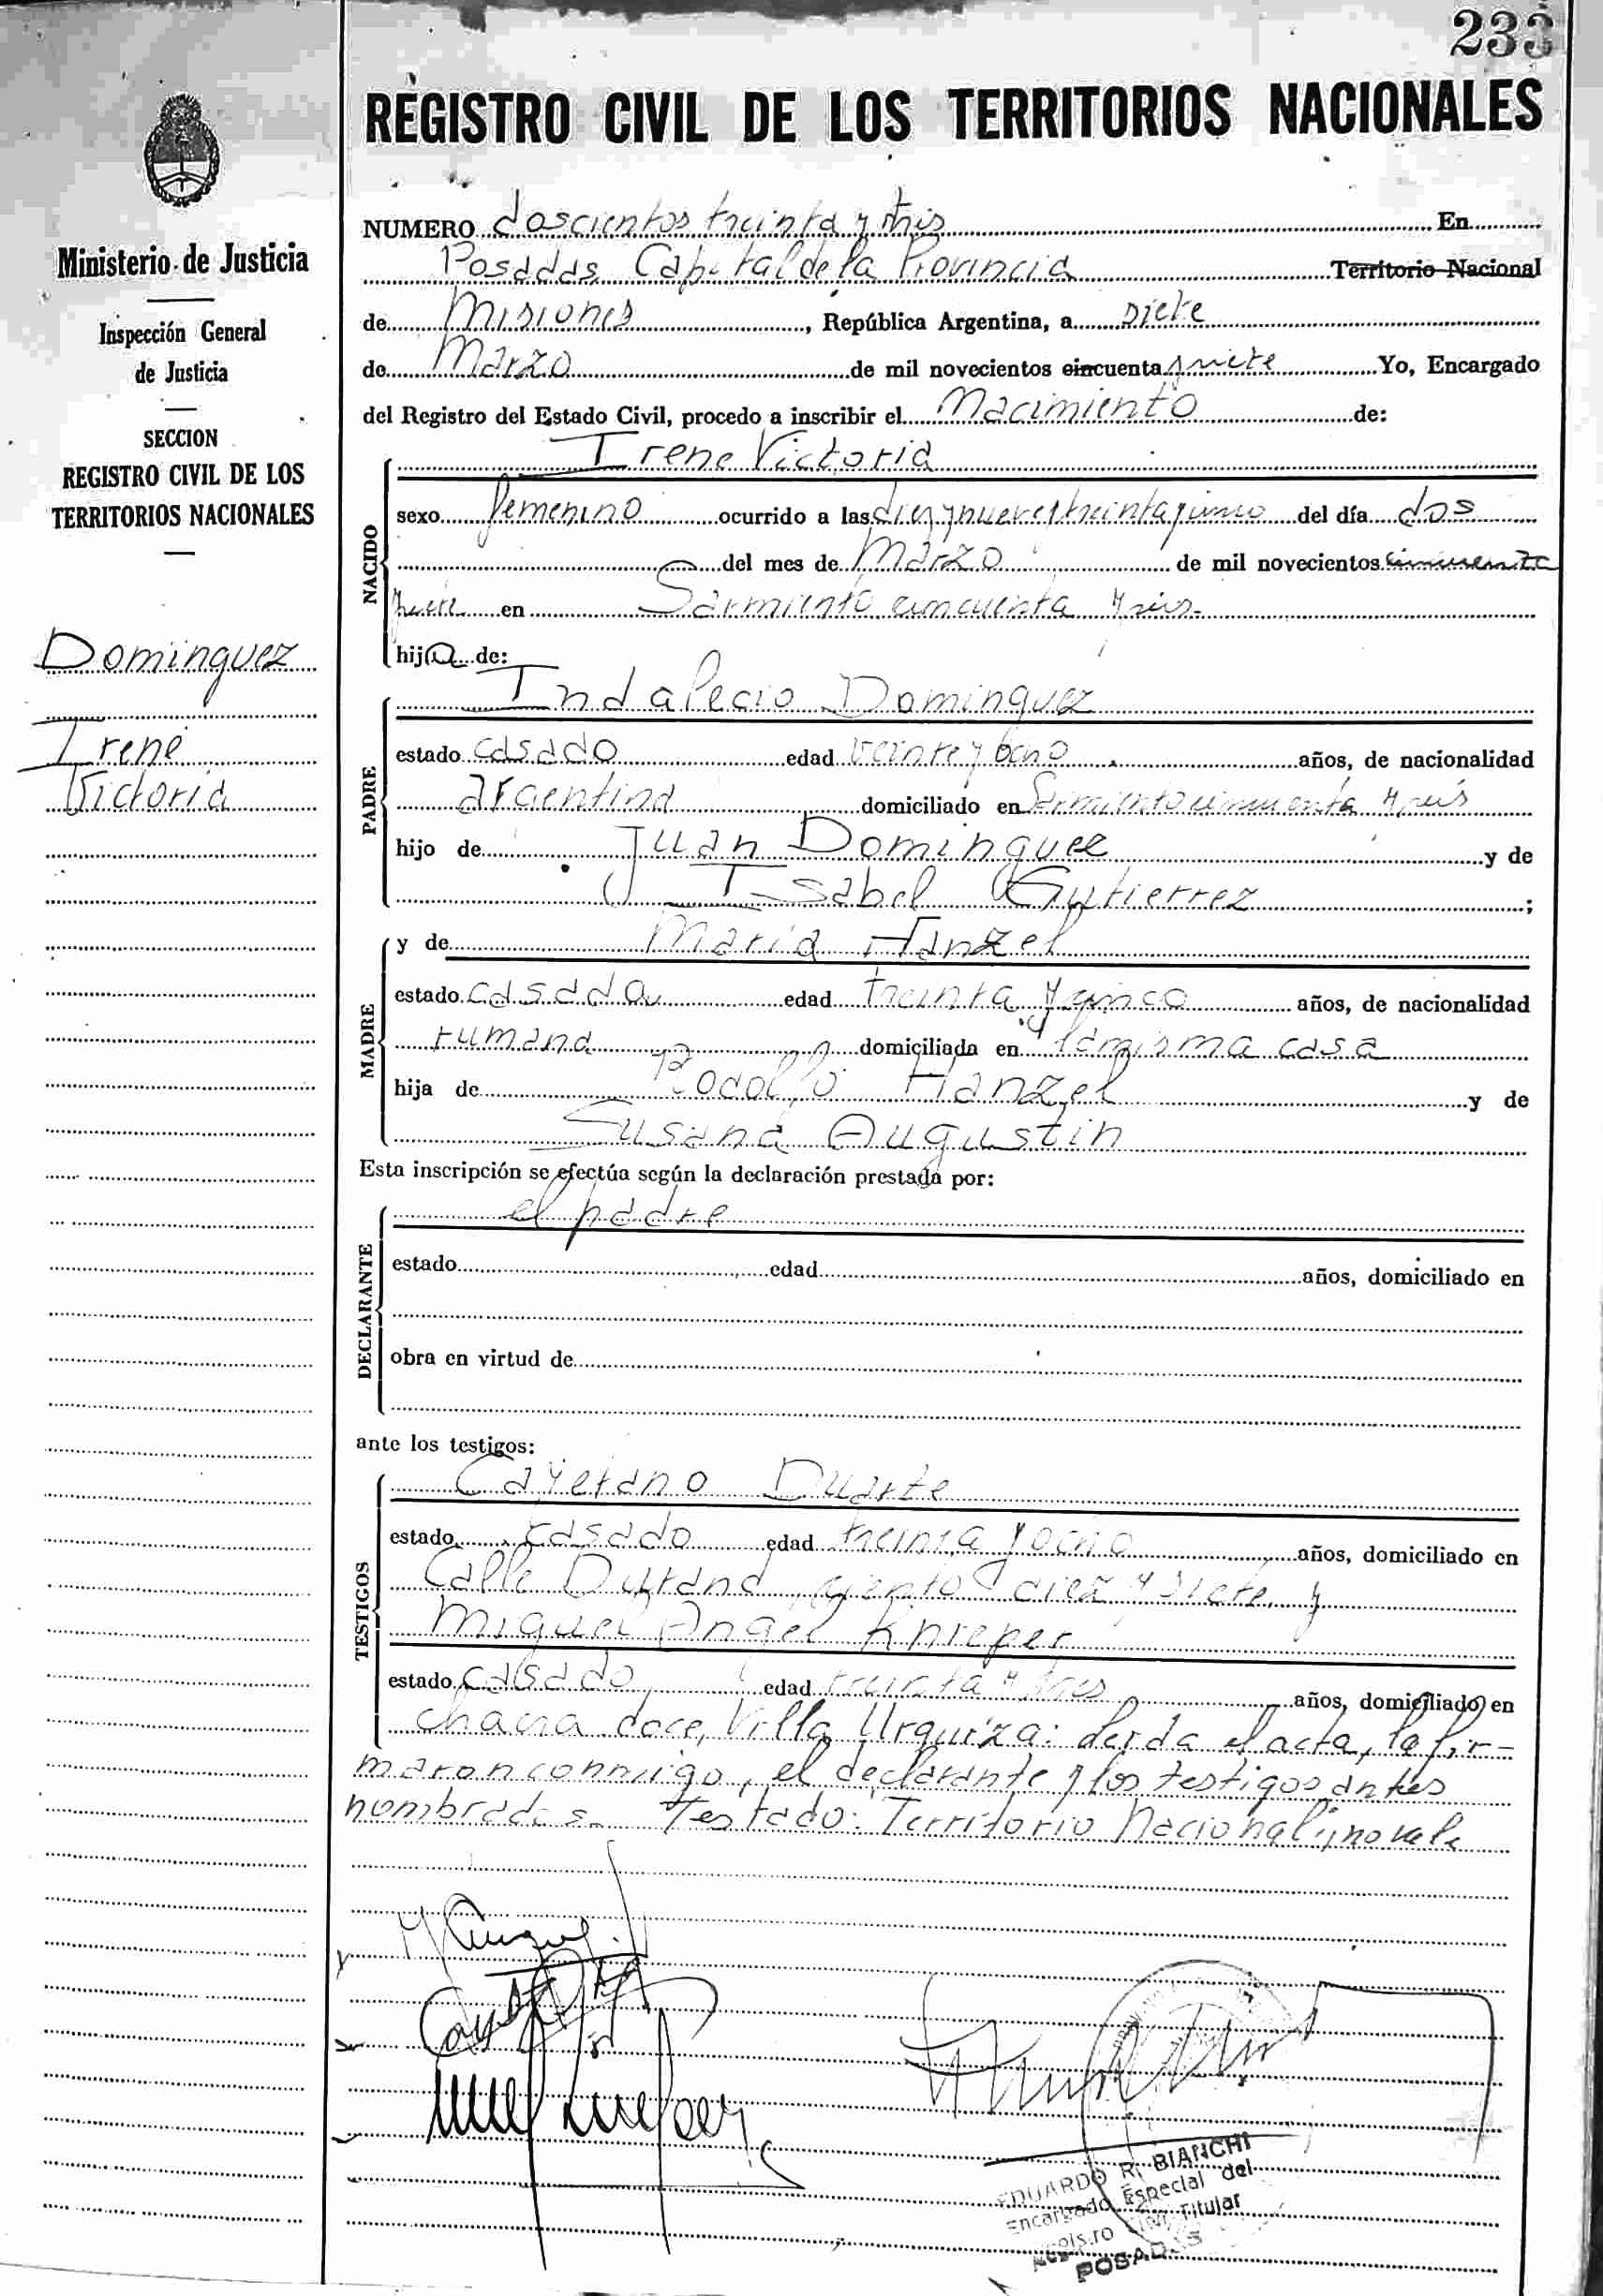 233
REGISTRO CIVIL DE LOS TERRITORIOS NACIONALES
Ministerio de Justicia
Inspección General
de Justicia
SECCION
REGISTRO CIVIL DE LOS
TERRITORIOS NACIONALES
Dominguez
Irene
Victoria
NUMERO doscientos treinta y tres En
Posadas Capital de la Provincia Territorio Nacional
de Misiones, República Argentina, a siete
de Marzo de mil novecientos cincuenta y siete Yo, Encargado
del Registro del Estado Civil, procedo a inscribir el Nacimiento de:
NACIDO
Irene Victoria
sexo femenino ocurrido a las diez y nueve y treinta y cinco del día dos
del mes de Marzo de mil novecientos cincuenta
y siete en Sarmiento cincuenta y seis
hija de:
PADRE
Indalecio Dominguez
estado casado edad veinte y ocho años, de nacionalidad
argentina domiciliado en Sarmiento cincuenta y seis
hijo de Juan Dominguez y de
Isabel Gutierrez;
MADRE
y de Maria Hanzel
estado casada edad treinta y cinco años, de nacionalidad
rumana domiciliada en la misma casa
hija de Rodolfo Hanzel y de
Susana Augustin
Esta inscripción se efectúa según la declaración prestada por:
DECLARANTE
el padre
estado edad años, domiciliado en
obra en virtud de
ante los testigos:
TESTIGOS
Cayetano Duarte
estado casado edad treinta y ocho años, domiciliado en
Calle ciento diez y siete, y
Miguel Angel Knieper
estado casado, edad treinta y tres años, domiciliado en
chacra doce, Villa Urquiza: leida el acta, la fir-
maron conmigo, el declarante y los testigos antes
nombrados. Testado: Territorio Nacional; no vale
EDUARDO R. BIANCHI
Encargado Especial del
Registro Civil Titular
POSADAS